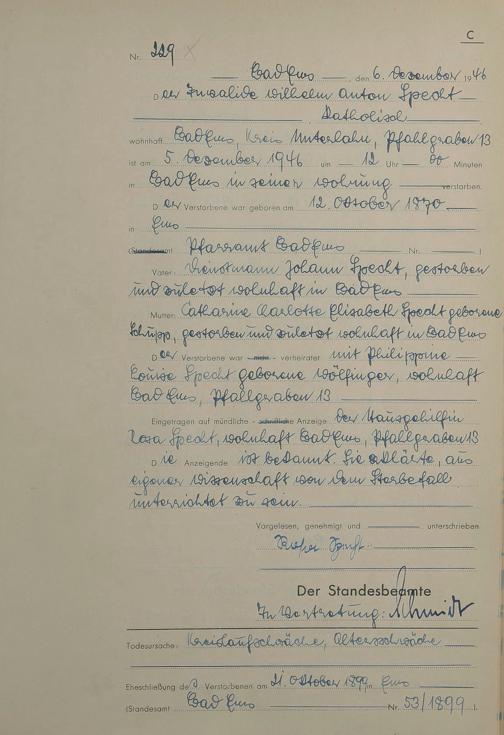 C
Nr. 229
Bad Ems, den 6. Dezember 1946
Der Invalide Wilhelm Anton Specht
Katholisch
wohnhaft Bad Ems, Kreis Unterlahn, Pfahlgraben 13
ist am 5. Dezember 1946 um 12 Uhr 00 Minuten
in Bad Ems in seiner Wohnung verstorben.
Der Verstorbene war geboren am 12. Oktober 1870
in Ems
(Standesamt Pfarramt Bad Ems Nr. )
Vater: Dienstmann Johann Specht, gestorben
und zuletzt wohnhaft in Bad Ems
Mutter: Catharina Charlotte Elisabeth Specht geborene
Schupp, gestorben und zuletzt wohnhaft in Bad Ems
Der Verstorbene war - nicht - verheiratet mit Philippine
Louise Specht geborene Wölfinger, wohnhaft
Bad Ems, Pfahlgraben 13
Eingetragen auf mündliche - schriftliche Anzeige der Hausgehilfin
Rosa Specht, wohnhaft Bad Ems, Pfahlgraben 13
Die Anzeigende ist bekannt. Sie erklärte, aus
eigener Wissenschaft von dem Sterbefall
unterrichtet zu sein.
Vorgelesen, genehmigt und unterschrieben
Der Standesbeamte
In Vertretung: Schmidt
Todesursache: Kreislaufschwäche, Altersschwäche
Eheschließung des Verstorbenen am 21. Oktober 1899 in Ems
(Standesamt Bad Ems Nr. 53/1899 ).